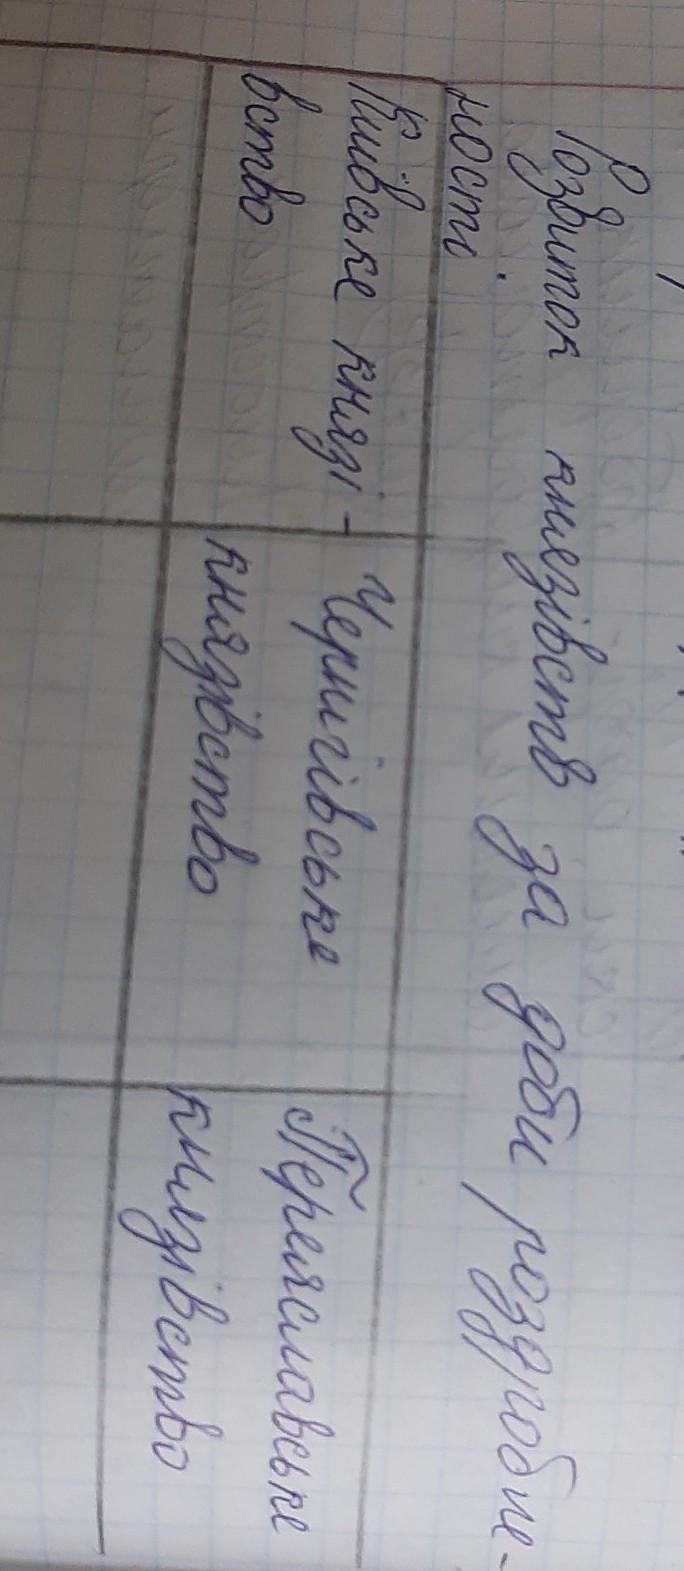 Розвиток князівств за доби роздробле-
ності.
Київське князі-
вство
Чернігівське
князівство
Переяславське
князівство